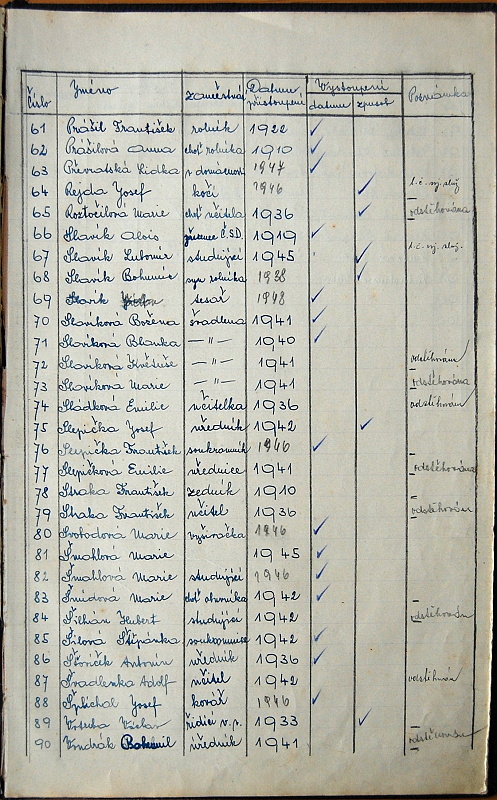 Číslo Jméno zaměstnání Datum přistoupení Vystoupení datum způsob Poznámka
61 Prášil František rolník 1922 ✓
62 Prášilová Anna choť rolníka 1910 ✓
63 Převratská Lidka v domácnosti 1947 ✓
64 Rejda Josef kočí 1946 ✓ t.č. voj. služ
65 Roztočilová Marie choť učitela 1936 ✓ odstěhována
66 Slavík Alois zřízenec Č.S.D. 1919 ✓
67 Slavík Lubomír studující 1945 ✓ t.č. voj. služ.
68 Slavík Bohumír syn rolníka 1938 ✓
69 Slavík tesař 1948 ✓
70 Slavíková Božena švadlena 1941 ✓
71 Slavíková Blanka — " — 1940 ✓
72 Slavíková Květuše — " — 1941 odstěhován
73 Slavíková Marie — " — 1941 odstěhována
74 Sládková Emilie učitelka 1936 odstěhován
75 Slepička Josef úředník 1942 ✓
76 Slepička František soukromník 1946 ✓
77 Slepičková Emilie úřednice 1941 odstěhována
78 Straka František zedník 1910
79 Straka František učitel 1936 odstěhován
80 Svobodová Marie 1946 ✓
81 Šmahlová Marie 1945 ✓
82 Šmahlová Marie studující 1946 ✓
83 Šmídová Marie choť obuvníka 1942 ✓
84 Hubert studující 1942 odstěhován
85 Šílová Štěpánka 1942 ✓
86 Antonín úředník 1936 ✓
87 Švadlenka Adolf učitel 1942 odstěhován
88 Šplíchal Josef kovář 1946 ✓
89 Václav řídící v.v. 1933 ✓
90 Vondrák Bohumil úředník 1941 odstěhován